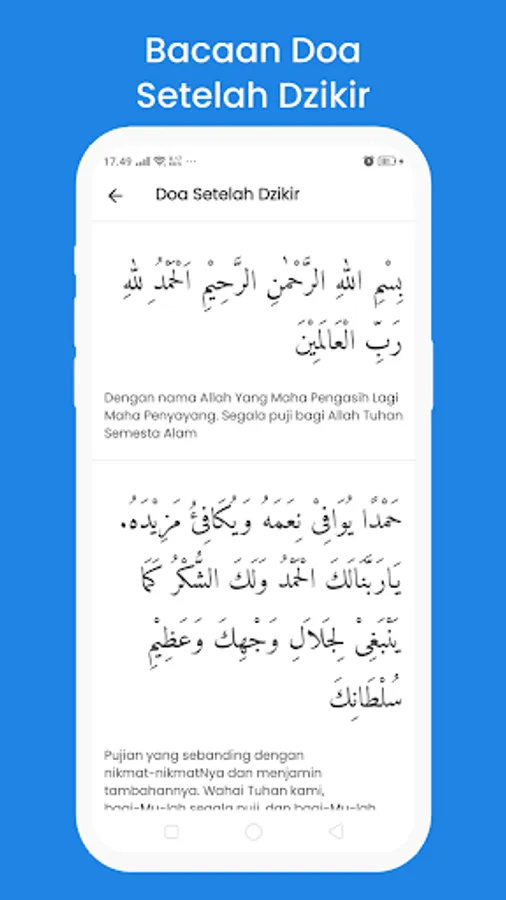 Bacaan Doa
Setelah Dzikir
17.49
Doa Setelah Dzikir
بِسْمِ اللهِ الرَّحْمٰنِ الرَّحِيْمِ اَلْحَمْدُ لِلهِ
رَبِّ الْعَالَمِيْنَ
Dengan nama Allah Yang Maha Pengasih Lagi
Maha Penyayang. Segala puji bagi Allah Tuhan
Semesta Alam
حَمْدًا يُوَافِيْ نِعَمَهُ وَيُكَافِئُ مَزِيْدَهُ.
يَارَبَّنَالَكَ الْحَمْدُ وَلَكَ الشُّكْرُ كَمَا
يَنْبَغِيْ لِجَلَالِ وَجْهِكَ وَعَظِيْمِ
سُلْطَانِكَ
Pujian yang sebanding dengan
nikmat-nikmatNya dan menjamin
tambahannya. Wahai Tuhan kami,
bagi-Mu-lah segala puji, dan bagi-Mu-lah